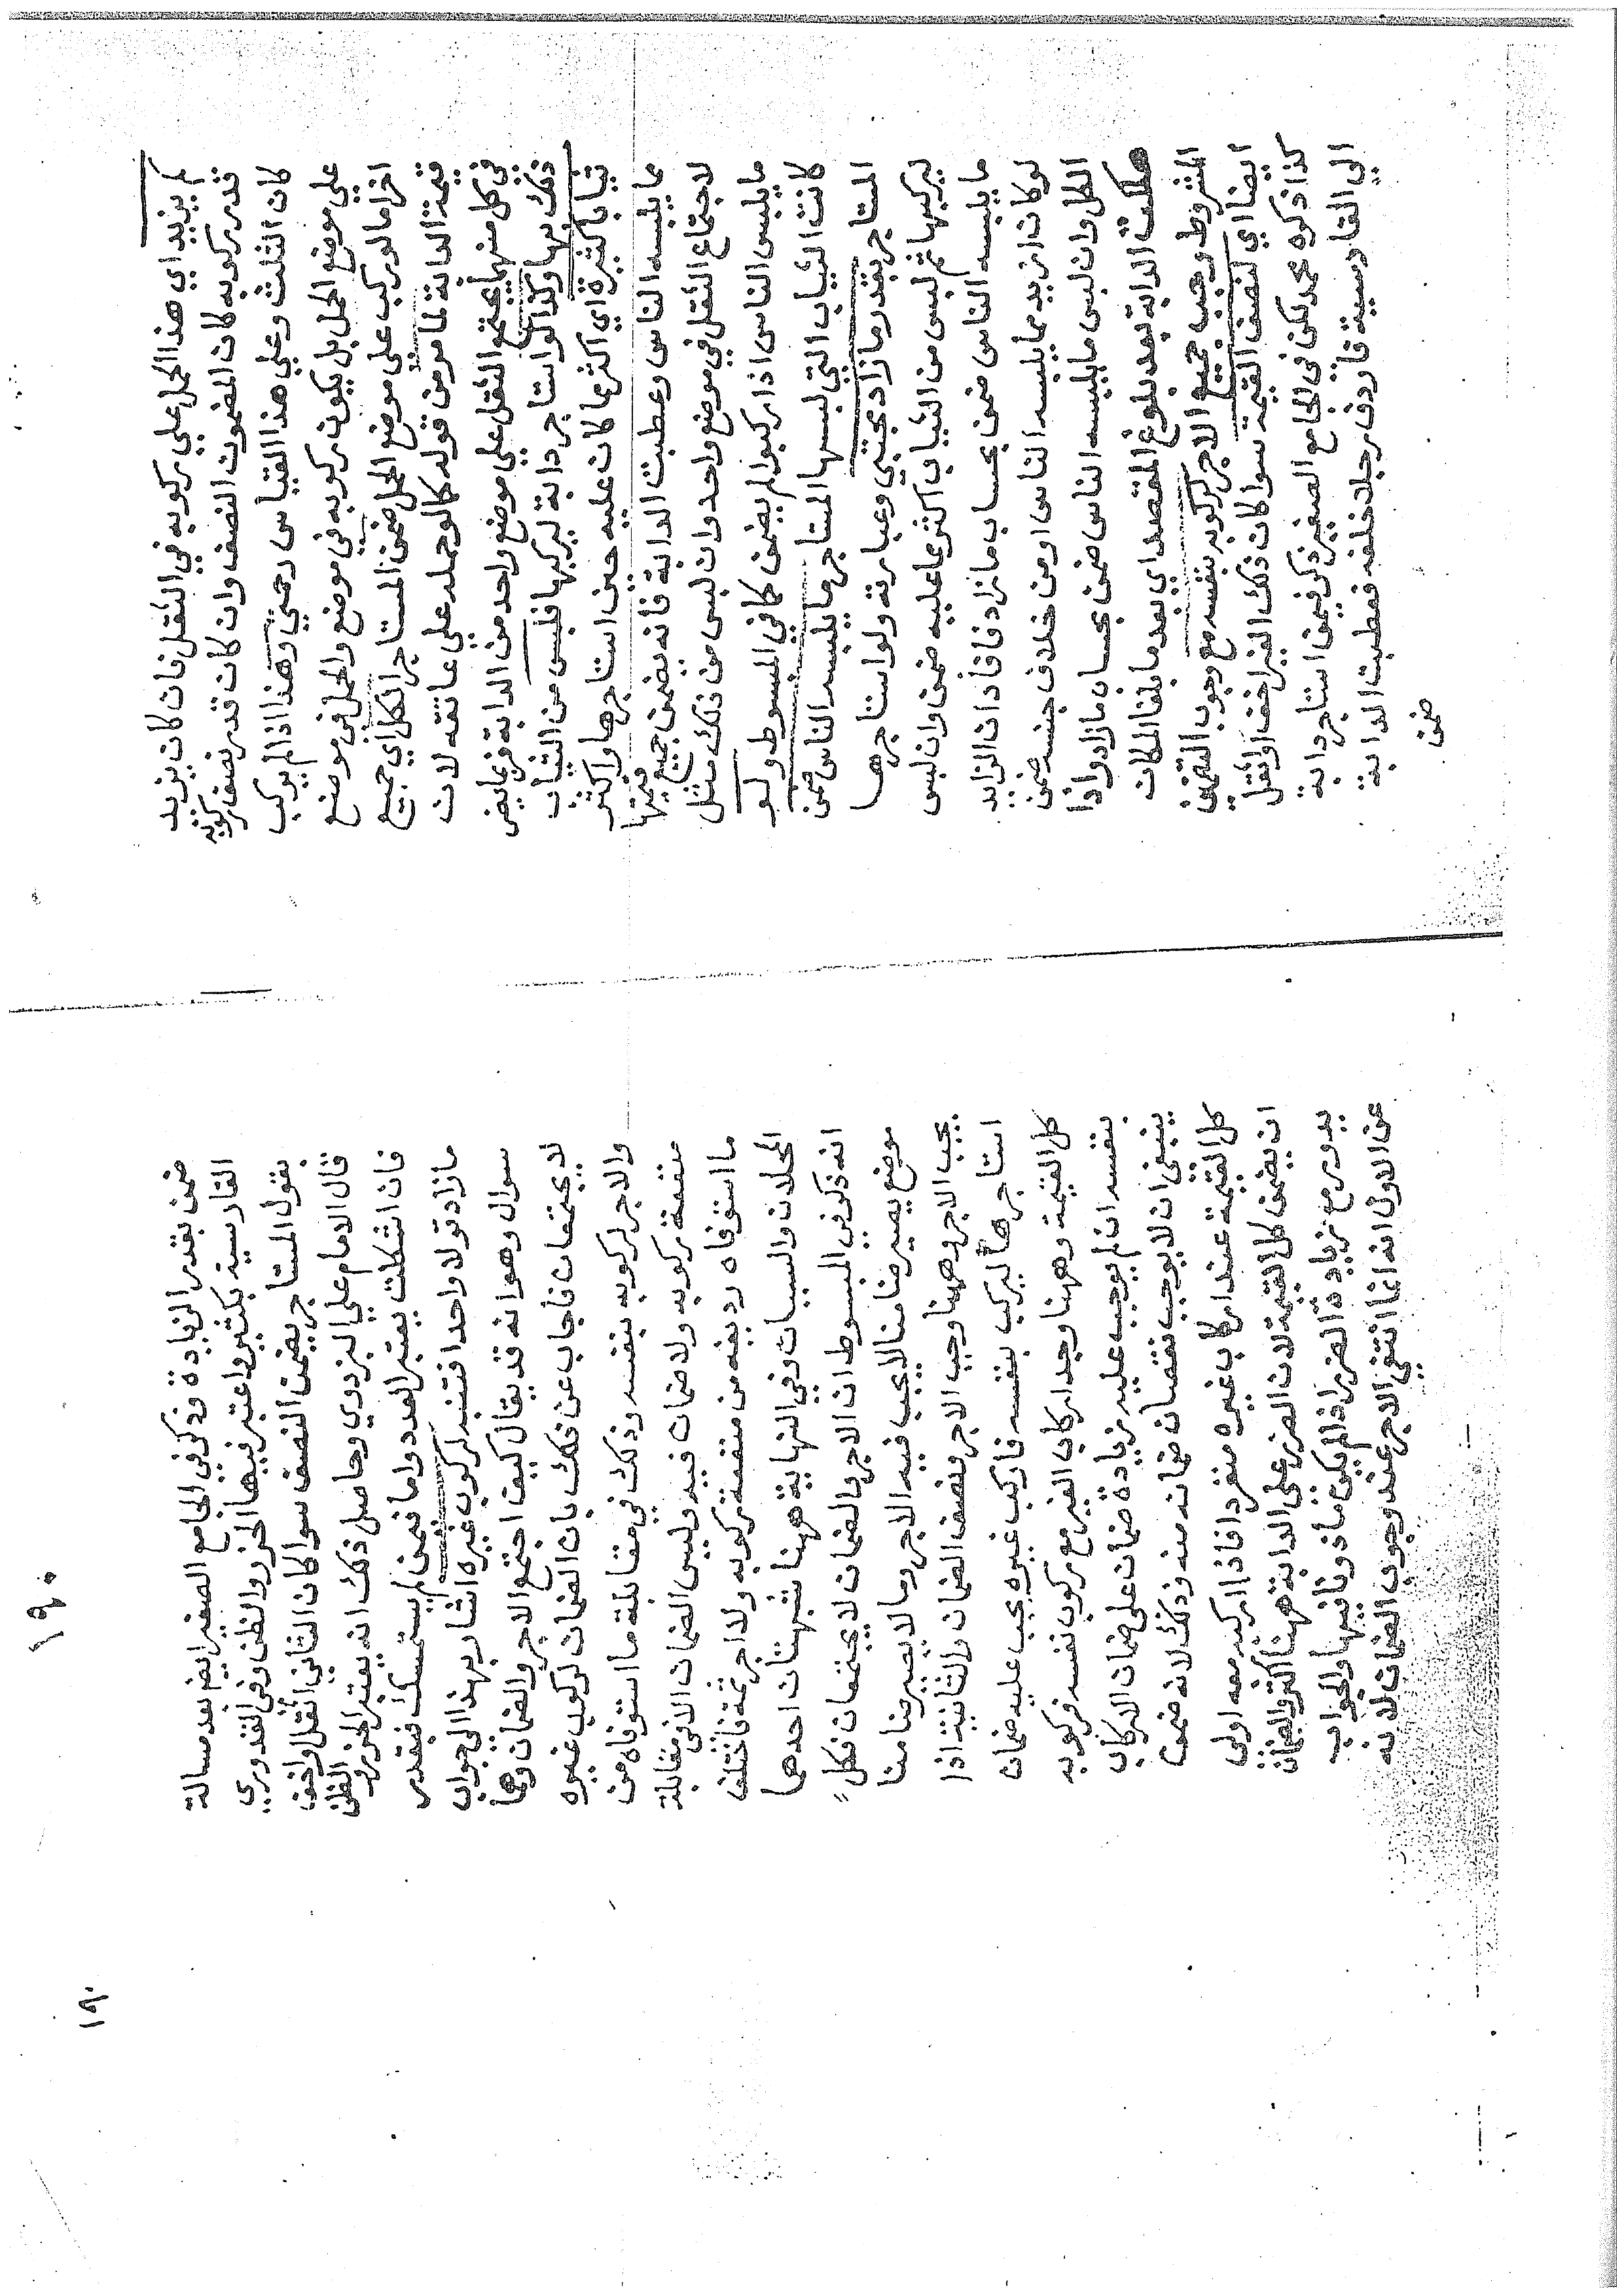 لم يزيد اي هذا الحمل علي ركوبه في الثقل فان كان يزيد
قدر ركوبه كان المضمون النصف وان كان قدر نصف ركوبه
كان الثلث وعلي هذا القياس رحمتي وهذا اذا لم يركب
علي موضع الحمل بل يكون ركوبه في موضع والحمل في موضع
اخر اما لو ركب على موضع الحمل ضمن المستاجر الكل اي جميع
قيمة الدابة لما مر من قوله كما لو حمله علي عاتقه لان
في كل منهما يجتمع الثقل علي موضع واحد من الدابة فربما يضر
ذلك بها وكذا لو استاجر دابة ليركبها فلبس من الثياب
ثيابا كثيرة اي اكثر مما كان عليه حين استاجرها واكثر
مما يلبسه الناس وعطبت الدابة فانه يضمن جميع قيمتها
لاجتماع الثقل في موضع واحد وان لبس من ذلك مثل
ما يلبس الناس اذا ركبوا لم يضمن كما في المبسوط ولو
كانت الثياب التي لبسها المستاجر ما يلبسه الناس ضمن
المستاجر بقدر ما زاد مجتبي وعبارته ولو استاجرها
ليركبها ثم لبس من الثياب اكثر مما عليه ضمن وان لبس
ما يلبسه الناس ضمن بحساب ما زاد فافاد ان الزايد
لو كان ازيد مما يلبسه الناس او من خلاف جنسه ضمن
الكل وان لبس ما يلبسه الناس ضمن بحساب ما زاد واذا
هلكت الدابة بعد بلوغ المقصد اي بعد ما بلغا المكان
المشروط وجب جميع الاجر لركوبه بنفسه مع وجوب التضمين
ايضا اي لنصف القيمة سوا كان ذلك الغير اخف او اثقل
كذا ذكره محمد لكن في الجامع الصغير ذكر فيمن استاجر دابة
الي القادسية فاردف رجلا خلفه فعطبت الدابة
ضمن
ضمن بقدر الزيادة وذكر في الجامع الصغير ايضا بعد مسالة
القادسية بكثير واعتبر فيها الحزر والظن وفي القدوري
بقول المستاجر يضمن النصف سوا كان الثاني اثقل او اخف
قال الامام علي البزدوي وحاصل ذلك انه يعتبر الحزر والظن
فان اشكلت يعتبر العدد واما فيمن لم يستمسك فبقدر
ما زاد قولا واحدا فتنبه لركوب غيره اشار بهذا الي جواب
سوال وهو انه قد يقال كيف اجتمع الاجر والضمان وهما
لا يجتمعان فاجاب عن ذلك بان الضمان لركوب غيره
والاجر لركوبه بنفسه وذلك في مقابلة ما استوفاه من
منفعة ركوبه ولا ضمان فيه وليس الضمان الا في مقابلة
ما استوفاه رديفه من منفعة ركوبه ولا اجر ثمة فاختلف
المحلان والسببان وفي النهاية ههنا شبهتان احدهما
انه ذكر في المبسوط ان الاجر والضمان لا يجتمعان فكل
موضع يصير ضامنا لا يجب فيه الاجر وما لا يصير ضامنا
يجب الاجر وههنا وجب الاجر ونصف الضمان والثانية اذا
استاجرها ليركب بنفسه فاركب غيره يجب عليه ضمان
كل القيمة وههنا وجد اركاب الغير مع ركوب نفسه فركوبه
بنفسه ان لم يوجب عليه زيادة ضمان علي ضمان الاركاب
ينبغي ان لا يوجب نقصان ضمانه منه وذلك لانه ضمن
كل القيمة عند اركاب غيره منفردا فاذا اركبه معه اولى
ان يضمن كل القيمة لان الضرر على الدابة ههنا اكثر والضمان
يدور مع زيادة الضرر اذا لم يكن ماذونا فيها والجواب
عن الاول انه انما انتفي الاجر عند وجوب الضمان لانه
١٩٠
١٩٠